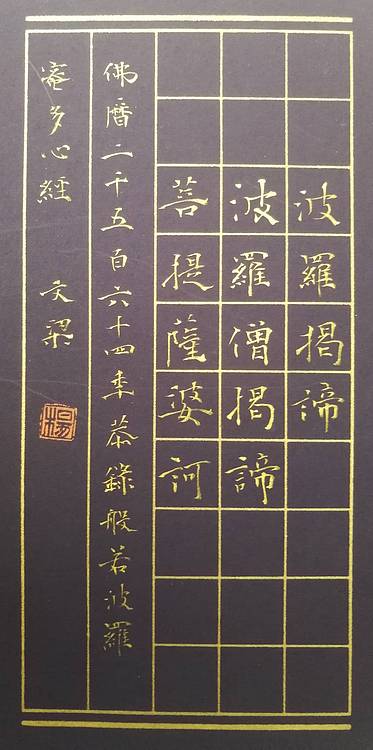 波羅揭諦
波羅僧揭諦
菩提薩婆訶
佛曆二千五百六十四年恭錄般若波羅
蜜多心經 文梁
楊